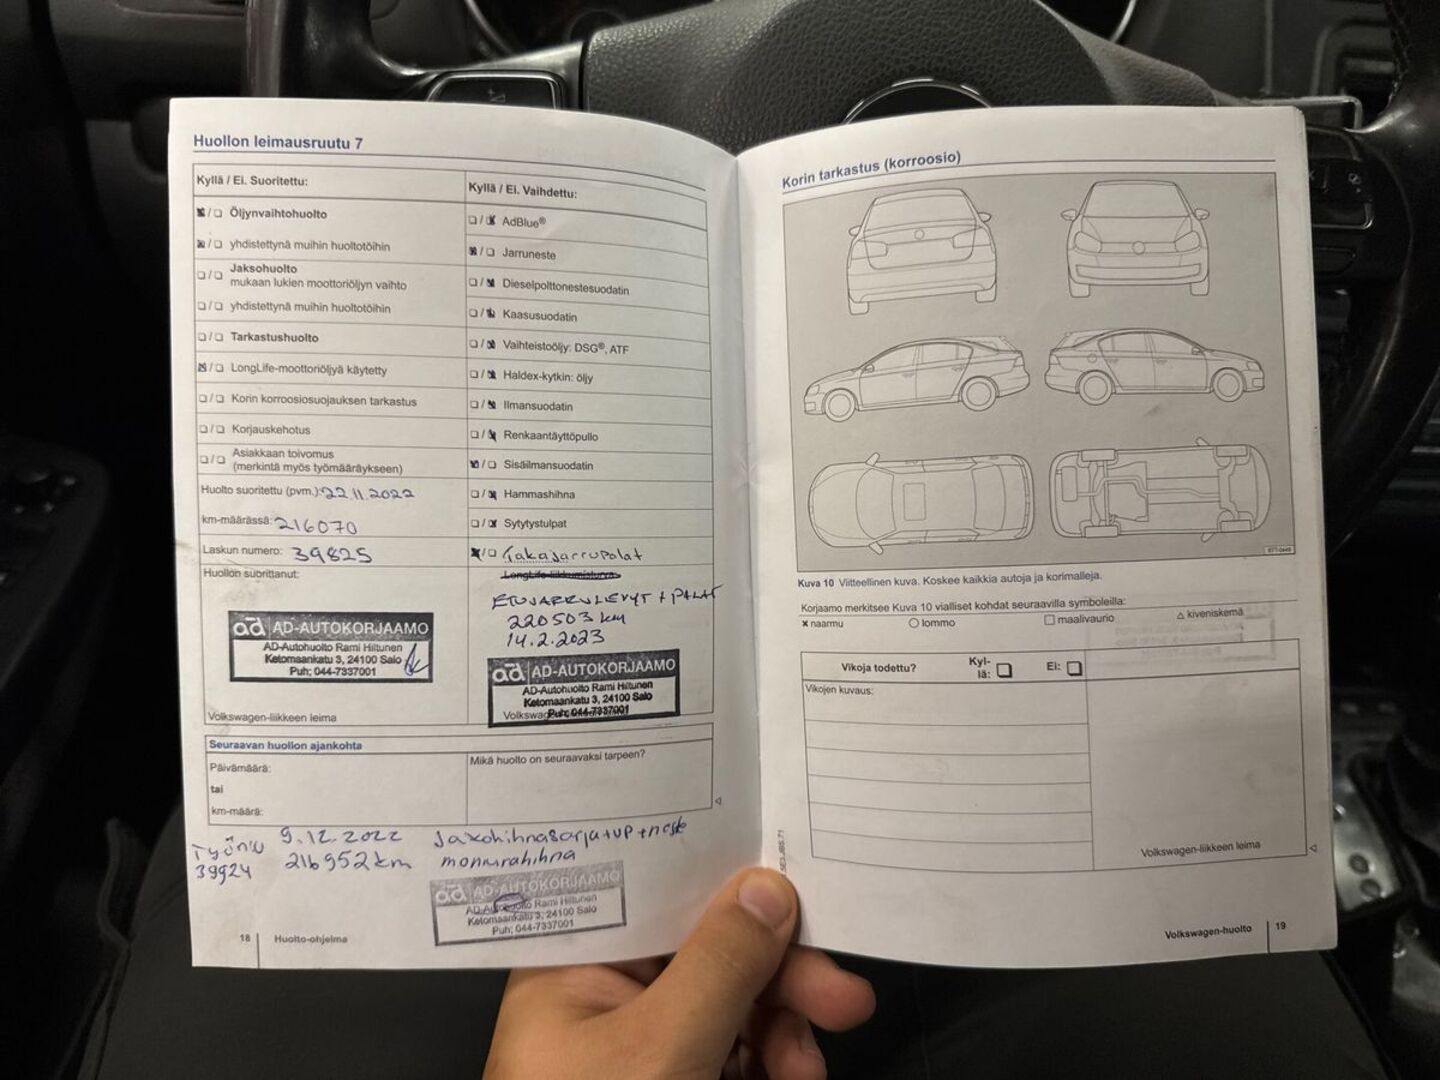 Huollon leimausruutu 7
Kyllä / Ei. Suoritettu:
Öljynvaihtohuolto
yhdistettynä muihin huoltotöihin
Jaksohuolto
mukaan lukien moottoriöljyn vaihto
yhdistettynä muihin huoltotöihin
Tarkastushuolto
LongLife-moottoriöljyä käytetty
Korin korroosiosuojauksen tarkastus
Korjauskehotus
Asiakkaan toivomus
(merkintä myös työmääräykseen)
Huolto suoritettu (pvm.): 22.11.2022
km-määrässä: 216070
Laskun numero: 39825
Huollon suorittanut:
ad AD-AUTOKORJAAMO
AD-Autohuolto Rami Hiltunen
Ketomaankatu 3, 24100 Salo
Puh; 044-7337001
Volkswagen-liikkeen leima
Kyllä / Ei. Vaihdettu:
AdBlue®
Jarruneste
Dieselpolttonestesuodatin
Kaasusuodatin
Vaihteistoöljy: DSG®, ATF
Haldex-kytkin: öljy
Ilmansuodatin
Renkaantäyttöpullo
Sisäilmansuodatin
Hammashihna
Sytytystulpat
Takajarrupalat
ETUJARRULEVYT + PALAT
220503 km
14.2.2023
ad AD-AUTOKORJAAMO
AD-Autohuolto Rami Hiltunen
Ketomaankatu 3, 24100 Salo
Puh; 044-7337001
Seuraavan huollon ajankohta
Päivämäärä:
tai
km-määrä:
Mikä huolto on seuraavaksi tarpeen?
Työn:o 9.12.2022 Jakohihnasarja+vp+neste
39924 216952 km moniurahihna
ad AD-AUTOKORJAAMO
AD-Autohuolto Rami Hiltunen
Ketomaankatu 3, 24100 Salo
Puh; 044-7337001
18 Huolto-ohjelma
Korin tarkastus (korroosio)
Kuva 10 Viitteellinen kuva. Koskee kaikkia autoja ja korimalleja.
Korjaamo merkitsee Kuva 10 vialliset kohdat seuraavilla symboleilla:
× naarmu ○ lommo □ maalivaurio △ kiveniskemä
Vikoja todettu? Kyl-lä: Ei:
Vikojen kuvaus:
Volkswagen-liikkeen leima
Volkswagen-huolto 19